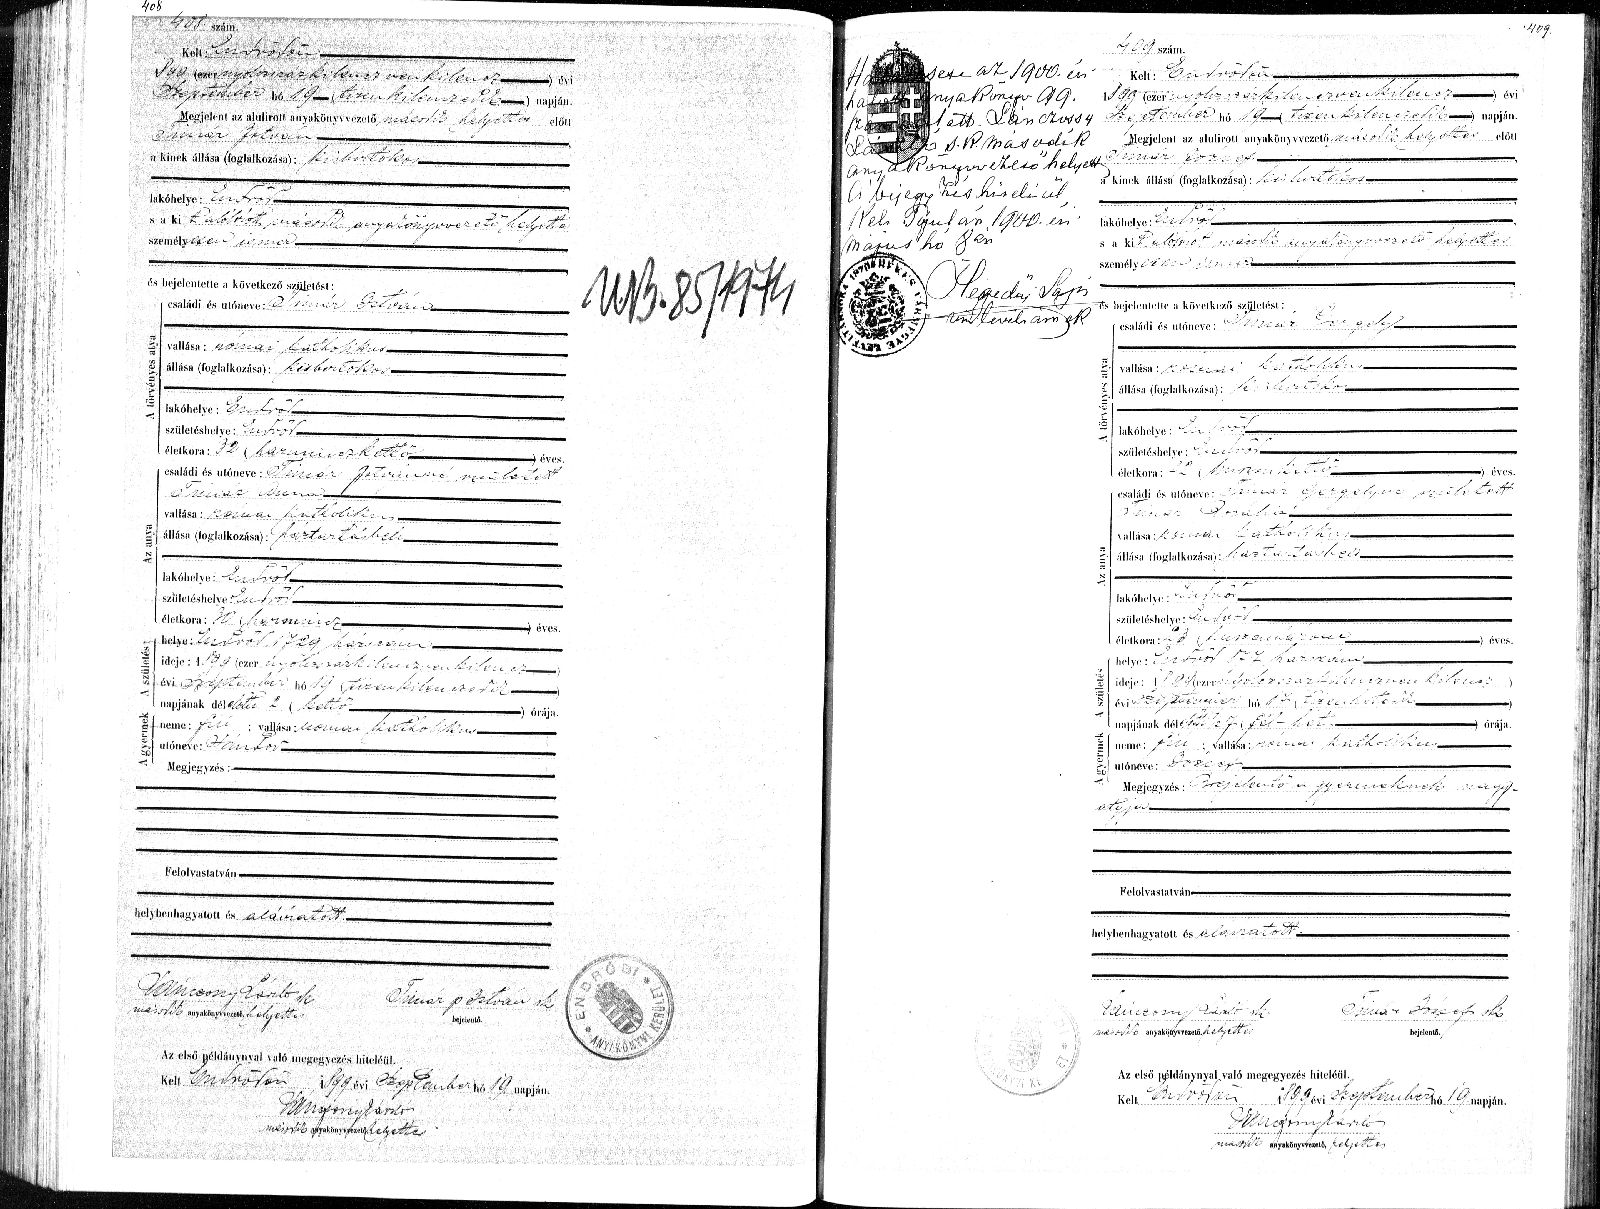 408
408 szám.
Kelt: Endrődön
1899 (ezer nyolczszázkilenczvenkilencz) évi
Szeptember hó 19 (tizenkilenczedik) napján.
Megjelent az alulirott anyakönyvvezető, második helyettes előtt
Timár István
a kinek állása (foglalkozása): kisbirtokos
lakóhelye: Endrőd
s a ki alólirott második anyakönyvvezető helyettes
személyesen ismer
és bejelentette a következő születést:
A törvényes atya
családi és utóneve: Timár István
vallása: római katholikus
állása (foglalkozása): kisbirtokos
lakóhelye: Endrőd
születéshelye: Endrőd
életkora: 32 (harminczkettő) éves.
Az anya
családi és utóneve: Timár Istvánné született
Timár Anna
vallása: római katholikus
állása (foglalkozása): háztartásbeli
lakóhelye: Endrőd
születéshelye: Endrőd
életkora: 30 (harmincz) éves.
A születés
helye: Endrőd 1729 házszám
ideje: 1899 (ezer nyolczszázkilenczvenkilencz)
évi Szeptember hó 19 (tizenkilenczedik)
napjának délután 2 (kettő) órája.
A gyermek
neme: fiú; vallása: római katholikus
utóneve: Sándor
Megjegyzés:
Felolvastatván
helybenhagyatott és aláiratott.
Lánczony László sk
második anyakönyvvezető, helyettes
Timár P István sk
bejelentő.
ENDRŐDI ANYAKÖNYVI KERÜLET
Az első példánynyal való megegyezés hiteléül.
Kelt Endrődön 1899 évi Szeptember hó 19 napján.
Lánczony László
második anyakönyvvezető, helyettes
UB. 85/1974
409
sese az 1900. évi
anyakönyv 99.
alatt. Lánczossy
s.k. második
anyakönyvvezető helyett
A bejegyzés hiteléül
Kelt Gyulán 1900. évi
május hó 8án
Hegedűs Lajos
levéltárnok
409 szám.
Kelt: Endrődön
1899 (ezer nyolczszázkilenczvenkilencz) évi
Szeptember hó 19 (tizenkilenczedik) napján.
Megjelent az alulirott anyakönyvvezető második helyettes előtt
Timár József
a kinek állása (foglalkozása): kisbirtokos
lakóhelye: Endrőd
s a ki alólirott második anyakönyvvezető helyettes
személyesen ismer
és bejelentette a következő születést:
A törvényes atya
családi és utóneve: Timár Gergely
vallása: római katholikus
állása (foglalkozása): kisbirtokos
lakóhelye: Endrőd
születéshelye: Endrőd
életkora: 22 (huszonkettő) éves.
Az anya
családi és utóneve: Timár Gergelyné született
Timár Rozália
vallása: római katholikus
állása (foglalkozása): háztartásbeli
lakóhelye: Endrőd
születéshelye: Endrőd
életkora: 23 (huszonhárom) éves.
A születés
helye: Endrőd 857 házszám
ideje: 1899 (ezer nyolczszázkilenczvenkilencz)
évi Szeptember hó 17 (tizenhetedik)
napjának délelőtt (fél hét) órája.
A gyermek
neme: fiú; vallása: római katholikus
utóneve: József
Megjegyzés: Bejelentő a gyermeknek nagy-
atyja
Felolvastatván
helybenhagyatott és aláiratott.
Lánczony László sk.
második anyakönyvvezető, helyettes
Timár József sk
bejelentő.
Az első példánynyal való megegyezés hiteléül.
Kelt Endrődön 1899 évi Szeptember hó 19 napján.
Lánczony László
második anyakönyvvezető, helyettes